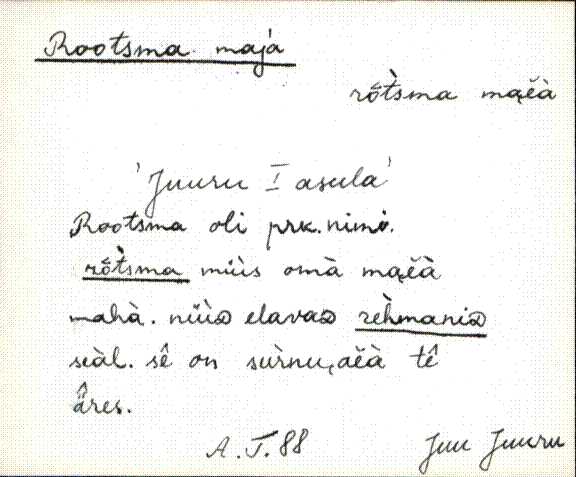 Rootsma maja
rő̀tsma maḙ̆à
'Juuru I asula'
Rootsma oli prk. nimi.
rő̀tsma müìs omà maḙ̆à
mahà. nüìᴅ elavaᴅ rèhmaniᴅ
seàl. sê on sur̀nu,aḙ̆à tê
âres.
A. T. 88 Juu Juuru